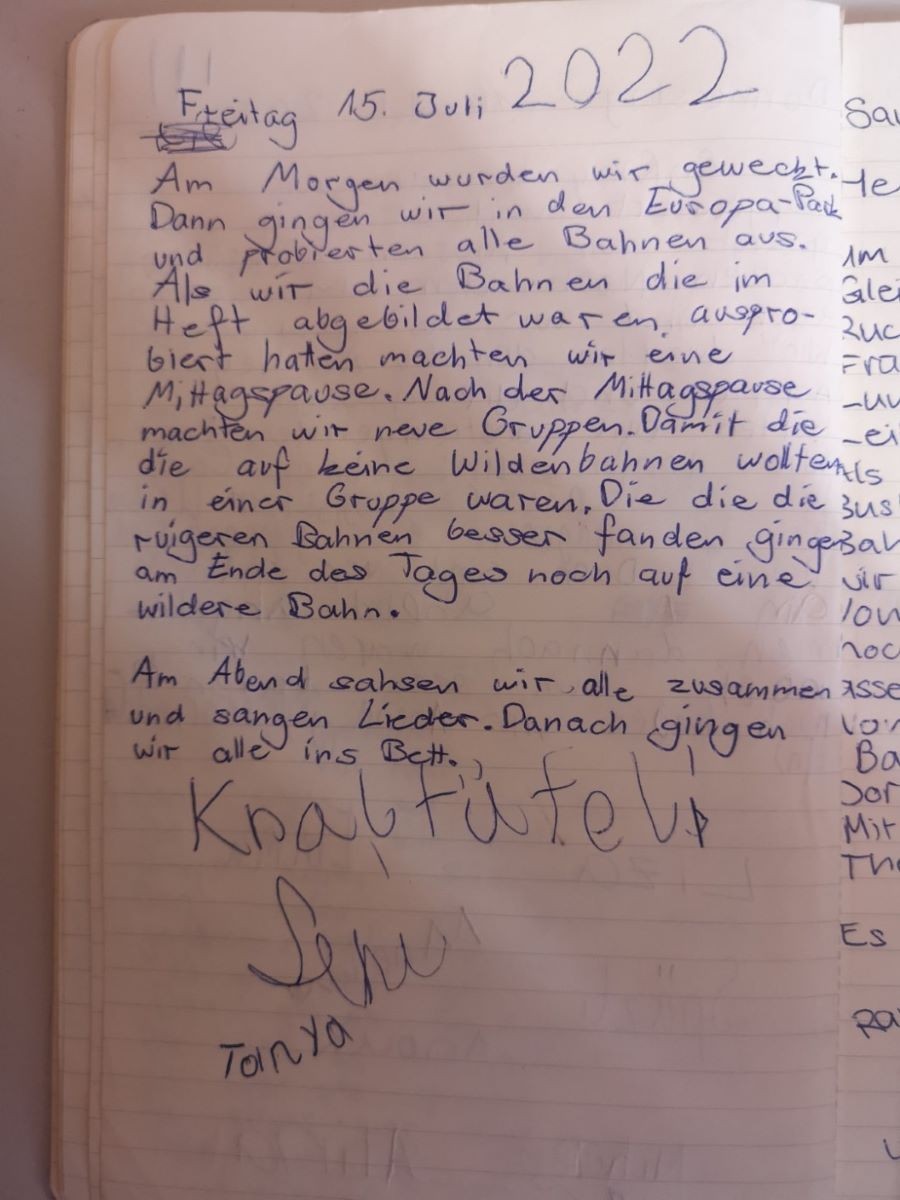 Freitag 15. Juli 2022
Am Morgen wurden wir geweckt.
Dann gingen wir in den Europa-Park
und probierten alle Bahnen aus.
Als wir die Bahnen die im
Heft abgebildet waren auspro-
biert hatten machten wir eine
Mittagspause. Nach der Mittagspause
machten wir neue Gruppen. Damit die
die auf keine Wildenbahnen wollten
in einer Gruppe waren. Die die die
ruigeren Bahnen besser fanden gingen
am Ende des Tages noch auf eine
wildere Bahn.
Am Abend sahsen wir alle zusammen
und sangen Lieder. Danach gingen
wir alle ins Bett.
Tanya
Sau
He
Im
Glei
Zuc
Fra
-ei
Als
Bus
Bah
wir
noc
asse
von
Ba
Dor
Mit
The
Es